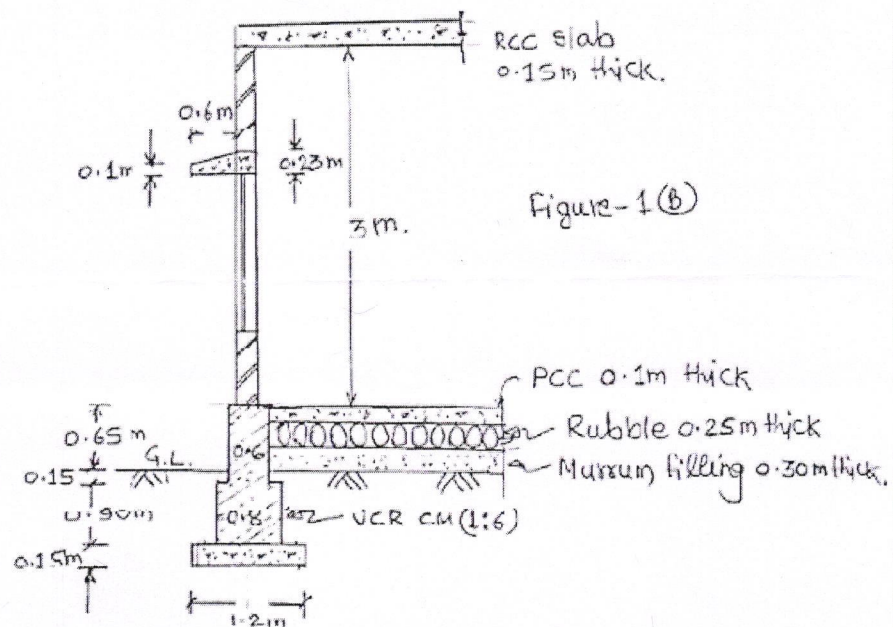 RCC slab
0.15m thick.
0.6m
0.1m
0.23m
Figure-1(B)
3m.
PCC 0.1m thick
0.65m
Rubble 0.25m thick
0.6
G.L.
Murrum filling 0.30m thick.
0.15
0.90m
0.8
UCR CM (1:6)
0.15m
1.2m